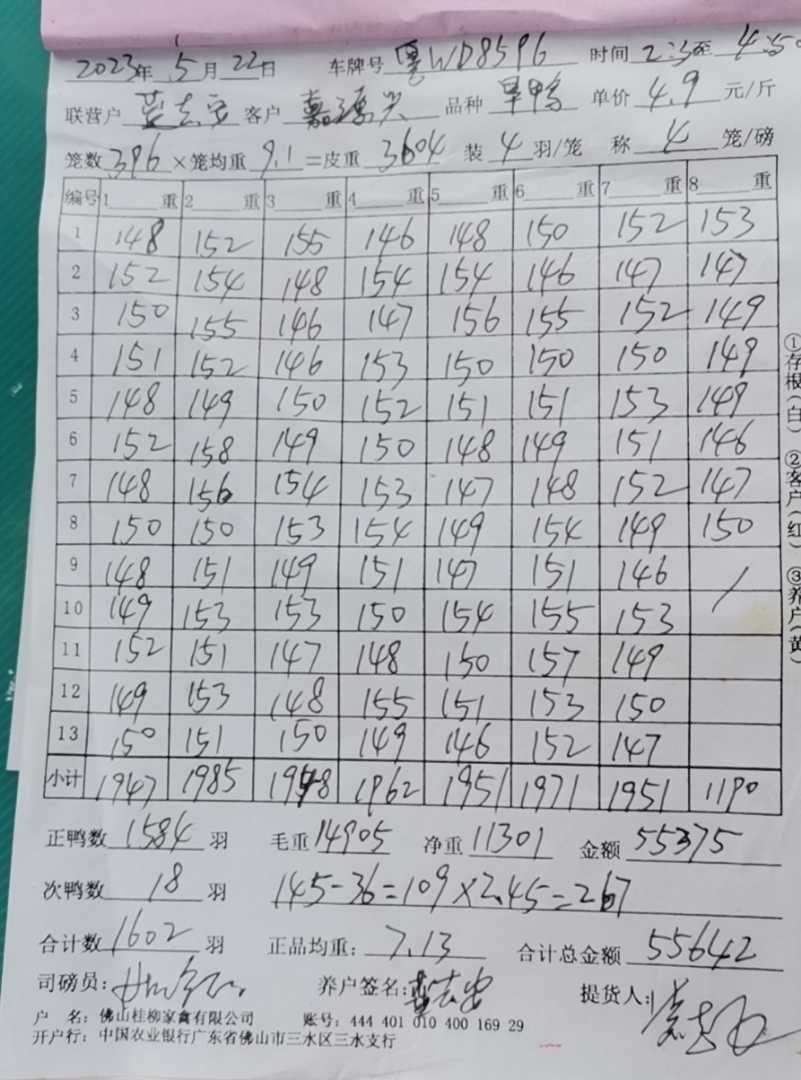 2023年 5月22日 车牌号 粤WD8596 时间 2:3 至 4:50
联营户 客户 嘉源兴 品种 旱鸭 单价 4.9 元/斤
笼数 396 ×笼均重 9.1 =皮重 3604 装 4 羽/笼 称 4 笼/磅
编号 1 重 2 重 3 重 4 重 5 重 6 重 7 重 8 重
1 148 152 155 146 148 150 152 153
2 152 154 148 154 154 146 147 147
3 150 155 146 147 156 155 152 149
4 151 152 146 153 150 150 150 149
5 148 149 150 152 151 151 153 149
6 152 158 149 150 148 149 151 146
7 148 156 154 153 147 148 152 147
8 150 150 153 154 149 154 149 150
9 148 151 149 151 147 151 146 /
10 149 153 153 150 154 155 153
11 152 151 147 148 150 157 149
12 149 153 148 155 151 153 150
13 150 151 150 149 146 152 147
小计 1947 1985 1948 1962 1951 1971 1951 1190
正鸭数 1584 羽 毛重 14905 净重 11301 金额 55375
次鸭数 18 羽 145-36=109×2.45=267
合计数 1602 羽 正品均重: 7.13 合计总金额 55642
司磅员: 养户签名: 提货人:
户 名: 佛山桂柳家禽有限公司 账号: 444 401 010 400 169 29
开户行: 中国农业银行广东省佛山市三水区三水支行
①存根(白) ②客户(红) ③养户(黄)